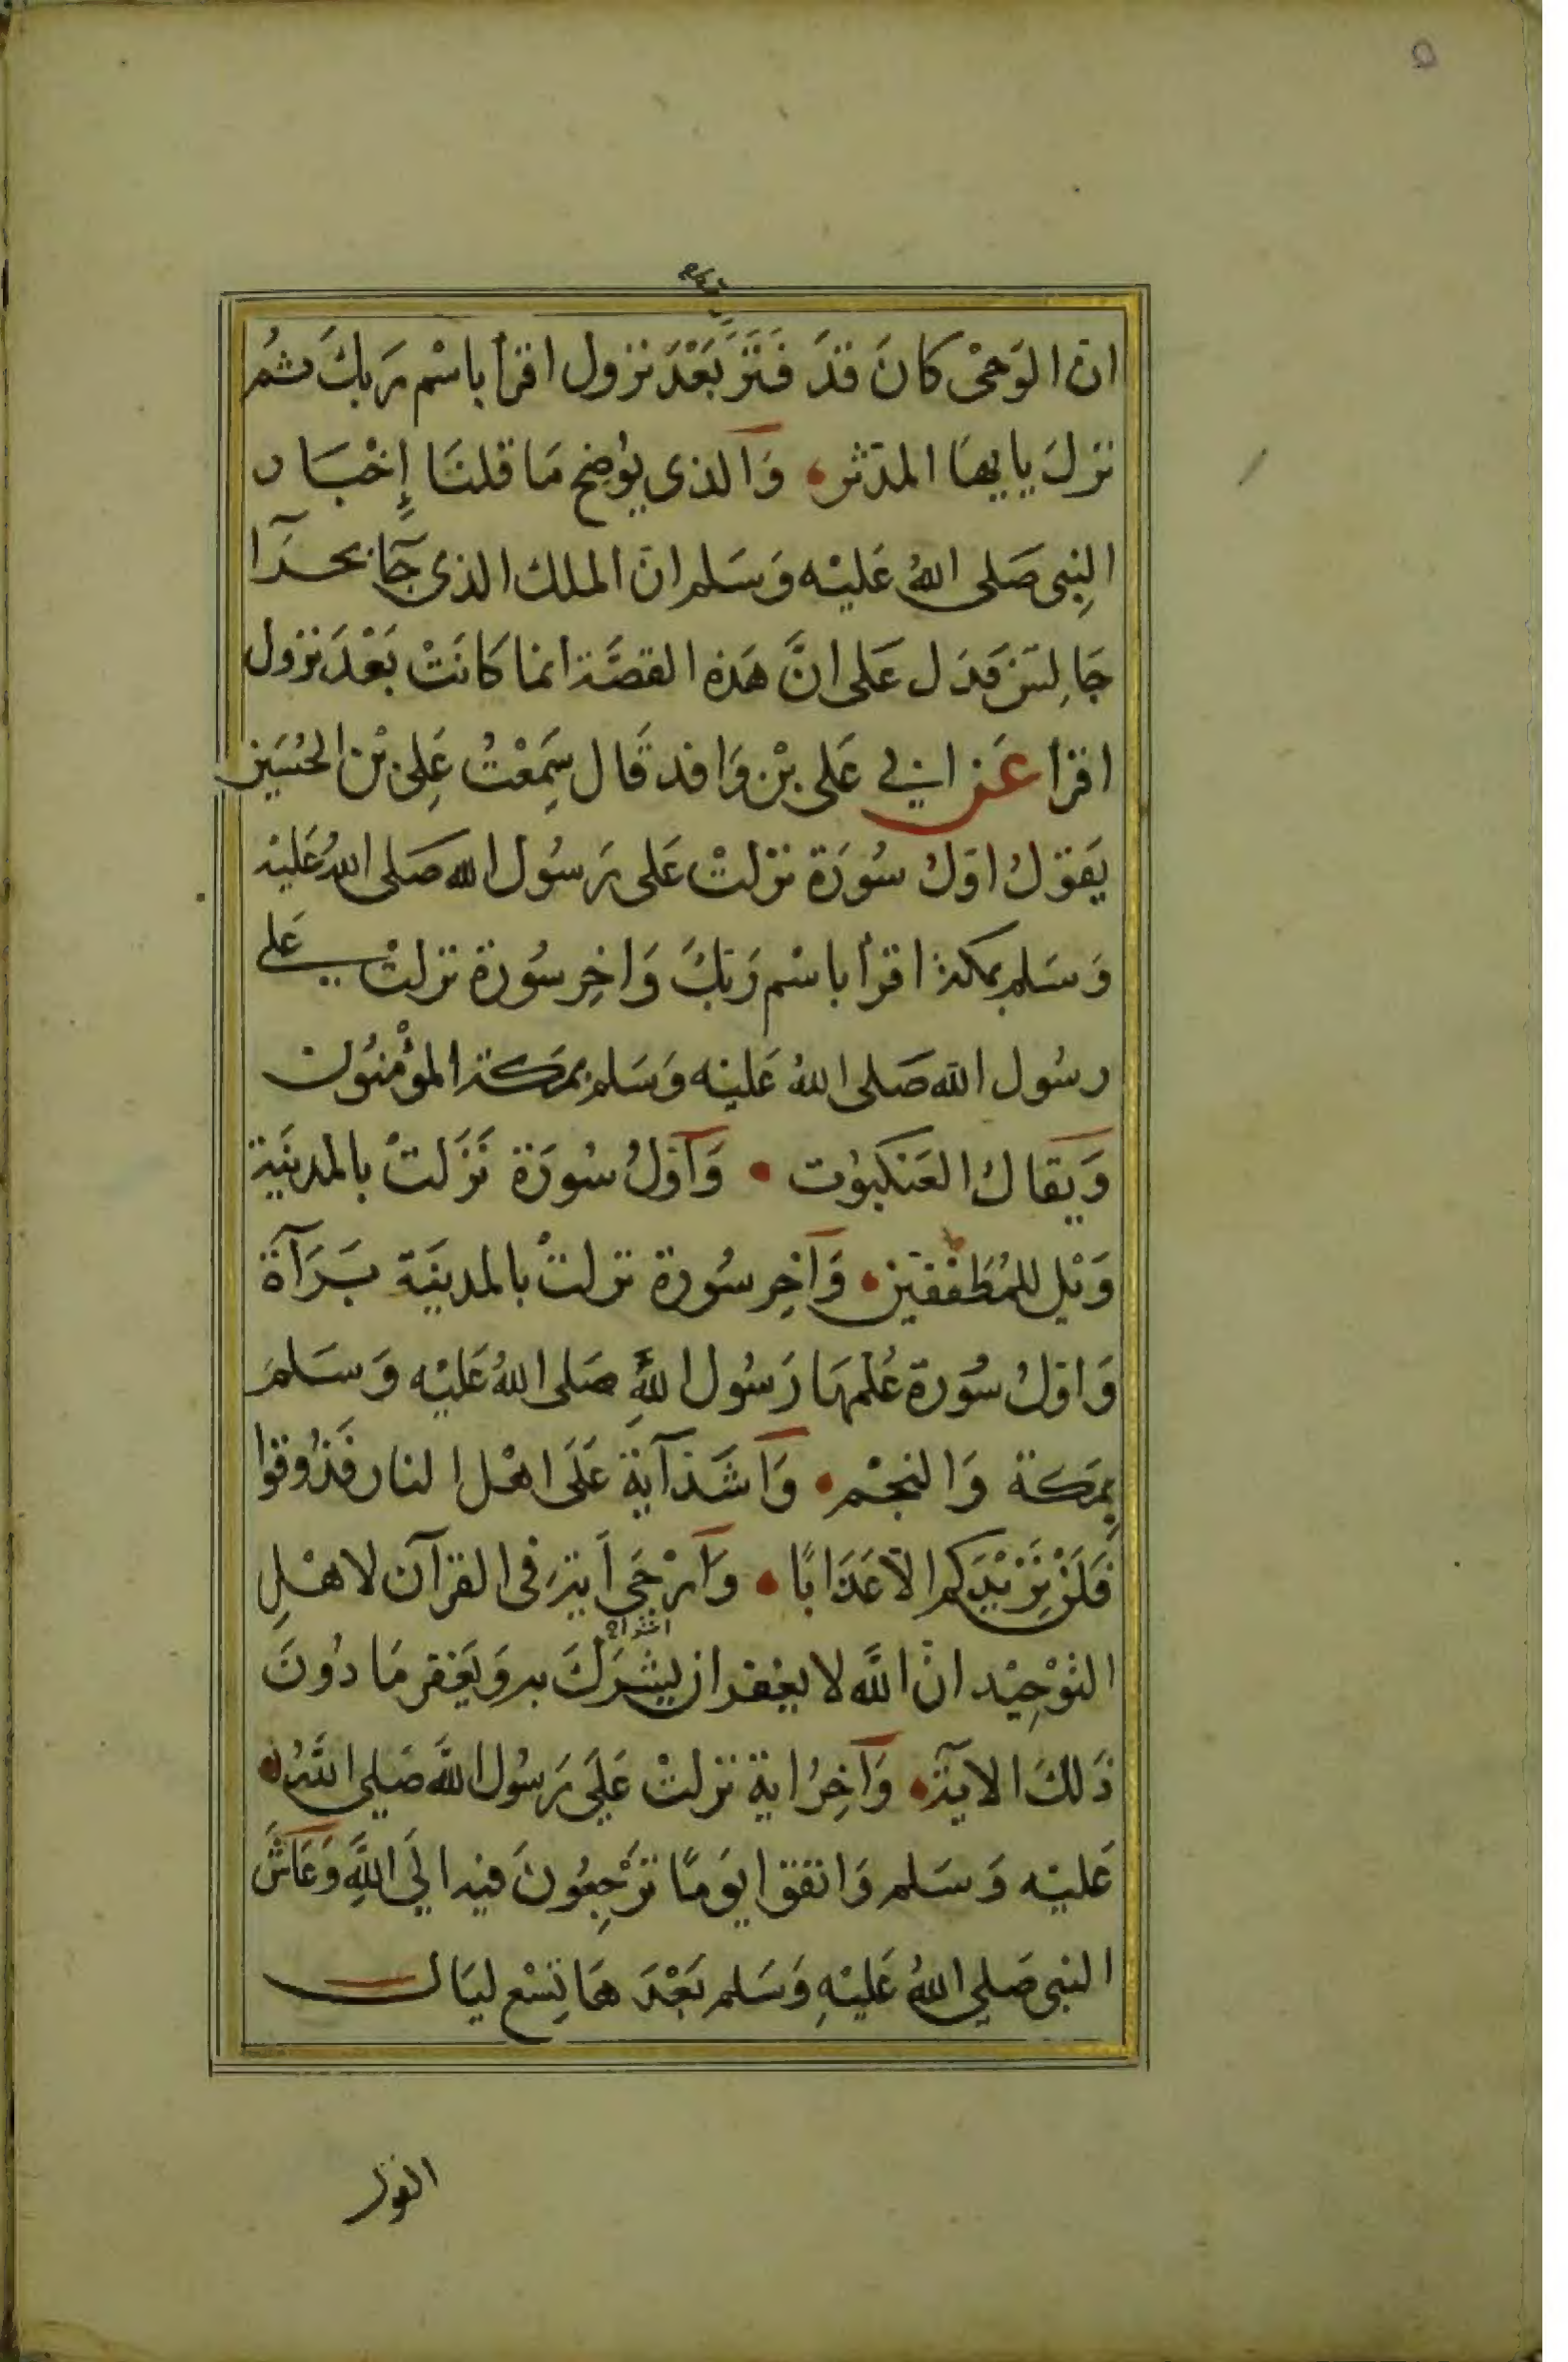 ان الوَحْى كانَ قدَ فَتَرَ بَعْدَ نزول اقرأ باسْم رَبكَ ثمُ
نزلَ يا يهَا المدَثر وَالذى يوُضِح مَا قلنَا إِخْبَار
النِبى صَلى اللهُ عَليْه وَسَلم انَ الملك الذى جَآ بحرَآ
جَالِسَن فدَل عَلى انَّ هَذه القصَّة انما كَانَتْ بَعْدَ نزول
اقرا عَن ابي عَلى بْن وَاقد قَال سَمِعْتُ عَلِىَ بْن الحُسَين
يَقوْلُ اوَلُ سُورَة نزلتْ عَلى رَسُول الله صَلى اللهُ عَليْه
وَسَلم بمكة اقرأ باسْم رَبكَ وَاخِر سُورة نزلتْ عَلى
رسُول الله صَلى اللهُ عَليْه وَسَلم بمَكة المؤْمنوُن
وَيقالُ العَنكبوُت وَاوَلُ سُورَة نَزَلتْ بالمدينَة
وَيْل للمُطَففين وَآخِر سُورة نزلتْ بالمدينَة بَرَآة
وَاوَلُ سُورة عُلمهَا رَسُول اللهِ صَلى اللهُ عَليْه وَسَلمَ
بِمَكة وَالنجْم وَاَشَد آية عَلَى اهْل النار فَذُوقوا
فَلَنْ نَزِيْدَكم الاَ عَذَابًا وَاَرْجَي اَية فى القرآن لاهْلِ
التوْحِيْد انَ اللَّه لا يغفر ان يشرَكَ به وَيَغفر مَا دوُنَ
ذَلكَ الايَة وَآخِرُ اية نزلتْ عَلَي رَسُول اللَّه صَلي اللَّهُ
عَليْه وَسَلم وَاتقوْا يوَمًا ترْجِعُونَ فيه الَي اللَّهِ وَعَاشَ
النبى صَلي اللهُ عَليْهِ وَسَلم بَعْدَ هَا تِسْع ليَال
القول